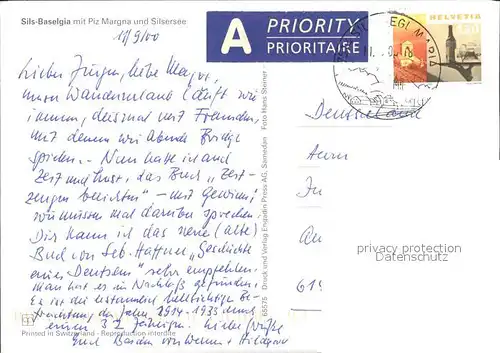 Sils-Baselgia mit Piz Margna und Silsersee
11/9/00
A PRIORITY
PRIORITAIRE
SEGL MARIA
HELVETIA
Lieber Jürgen, liebe
unser Wanderurlaub läuft wie
immer, diesmal mit Freunden,
mit denen wir abends Bridge
spielen. Nun hatte ich auch
Zeit und Lust, das Buch "Zeit-
zeugen berichten" - mit Gewinn,
wir müssen mal darüber sprechen.
Dir kann ich das neue (alte)
Buch von Seb. Haffner "Geschichte
eines Deutschen" sehr empfehlen.
Man hat es im Nachlaß gefunden.
Es ist die erstaunlich hellsichtige Be-
trachtung der Jahre 1914-1933 durch
einen 32 jährigen. Liebe Grüße
Euch Beiden von + Hildegard
Deutschland
Herrn
Ju
An
619
privacy protection
Datenschutz
65575 Druck und Verlag Engadin Press AG, Samedan Foto Hans Steiner
Printed in Switzerland - Reproduction interdite